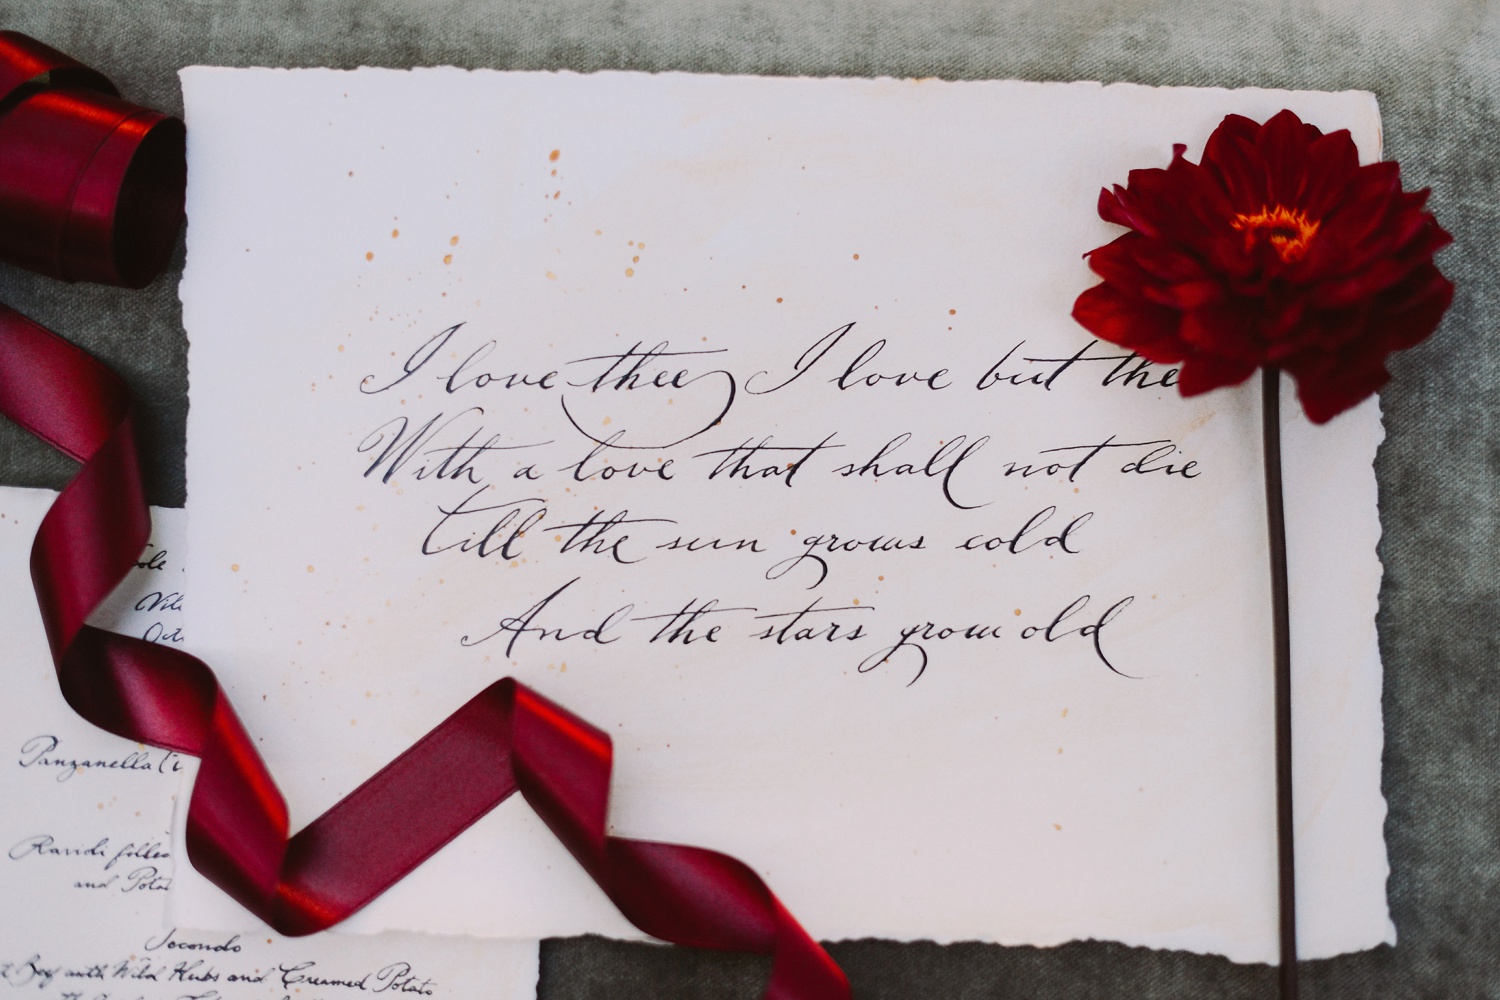 I love thee, I love but the
With a love that shall not die
till the sun grows cold
And the stars grow old
Panzanella
and
Secondo
with Wild Herbs and Creamed Potato